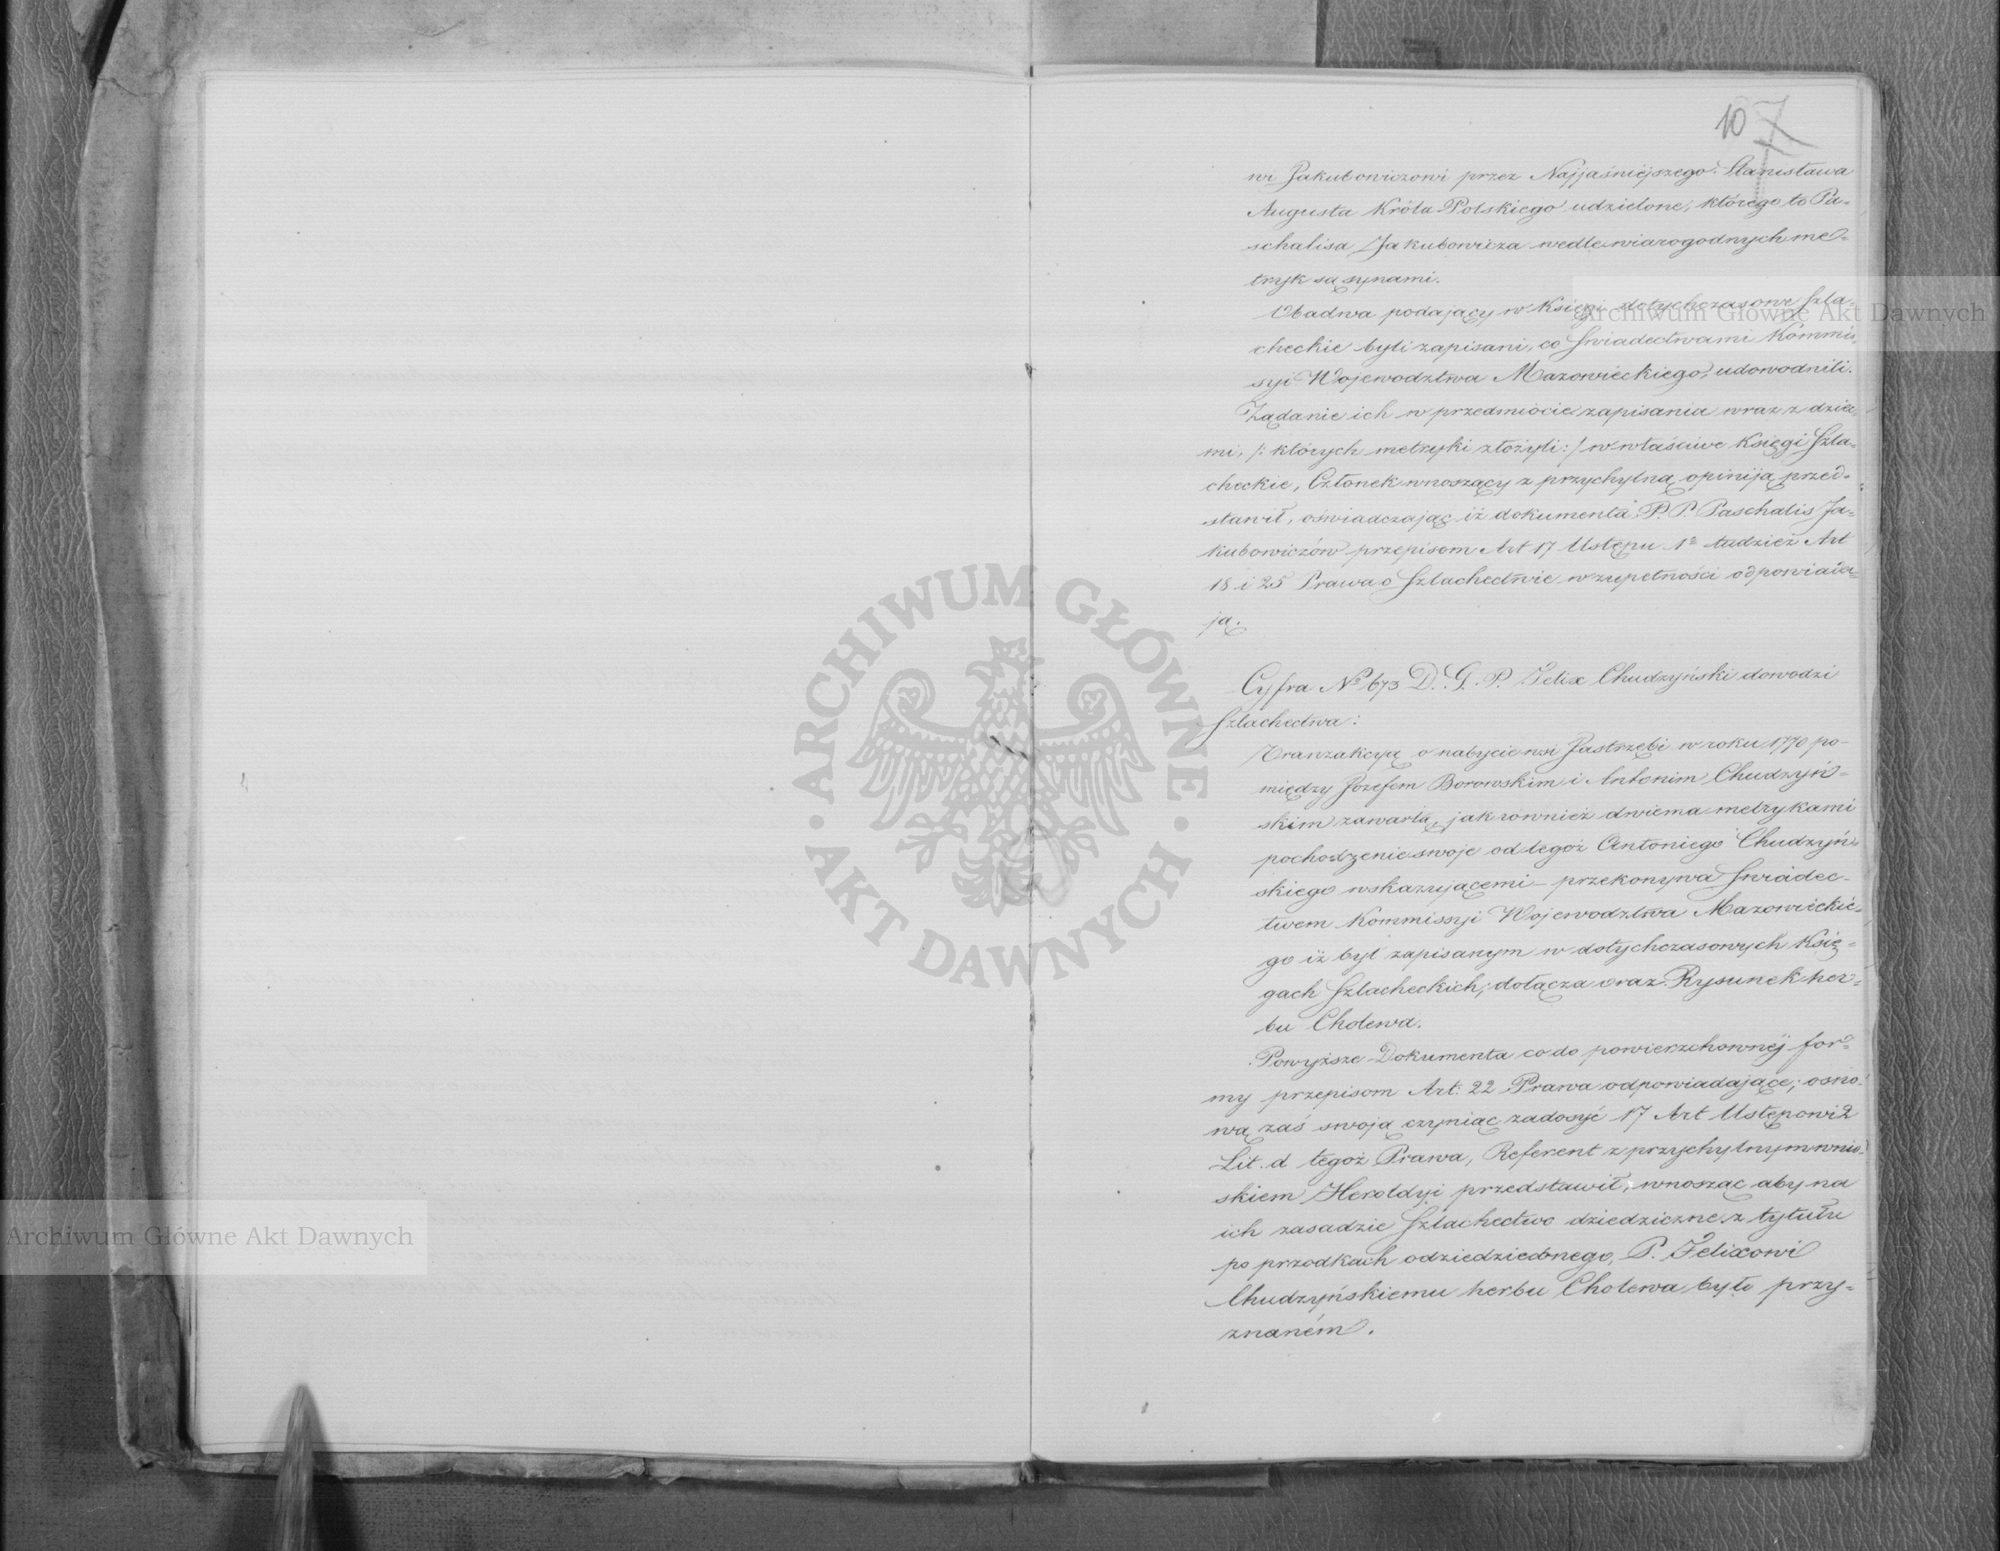 10 7
wi Jakubowiczowi przez Najjaśniejszego Stanisława
Augusta Króla Polskiego udzielone, którego to Pa-
schalisa Jakubowicza wedle wiarogodnych me-
tryk są synami.
Obadwa podający w Księgi dotychczasowe Szla-
checkie byli zapisani, co Świadectwami Kommis-
syi Województwa Mazowieckiego, udowodnili.
Żądanie ich w przedmiocie zapisania wraz z dzieć
mi, /: których metryki złożyli :/ w właściwe Księgi Szla-
checkie, Członek wnoszący z przychylną opiniją przed-
stawił, oświadczając iż dokumenta P. P. Paschalis Ja-
kubowiczów przepisom Art 17 Ustępu 1º tudzież Art
18 i 25 Prawa o Szlachectwie w zupełności odpowiada-
ją.
Cyfra Nº 673 D. G. P. Felix Chudzyński dowodzi
Szlachectwa:
Tranzakcyą o nabycie wsi Jastrzębi w roku 1770 po-
między Jozefem Borowskim i Antonim Chudzyń-
skim zawartą, jak również dwiema metrykami
pochodzenie swoje od tegoż Antoniego Chudzyń-
skiego wskazującemi – przekonywa Świadec-
twem Kommissyi Województwa Mazowieckie-
go iż był zapisanym w dotychczasowych Księ-
gach Szlacheckich, dołącza oraz Rysunek her-
bu Cholewa.
Powyższe Dokumenta co do powierzchownéj for-
my przepisom Art: 22 Prawa odpowiadające, osno-
wą zaś swoją czyniąc zadosyć 17 Art Ustępowi 2
Lit. d tegoż Prawa, Referent z przychylnym wnio-
skiem Heroldyi przedstawił, wnosząc aby na
ich zasadzie Szlachectwo dziedziczne z tytułu
po przodkach odziedziedonego, P. Felixowi
Chudzyńskiemu herbu Cholewa było przy-
znaném.
Archiwum Główne Akt Dawnych
ARCHIWUM GŁÓWNE
AKT DAWNYCH
Archiwum Główne Akt Dawnych